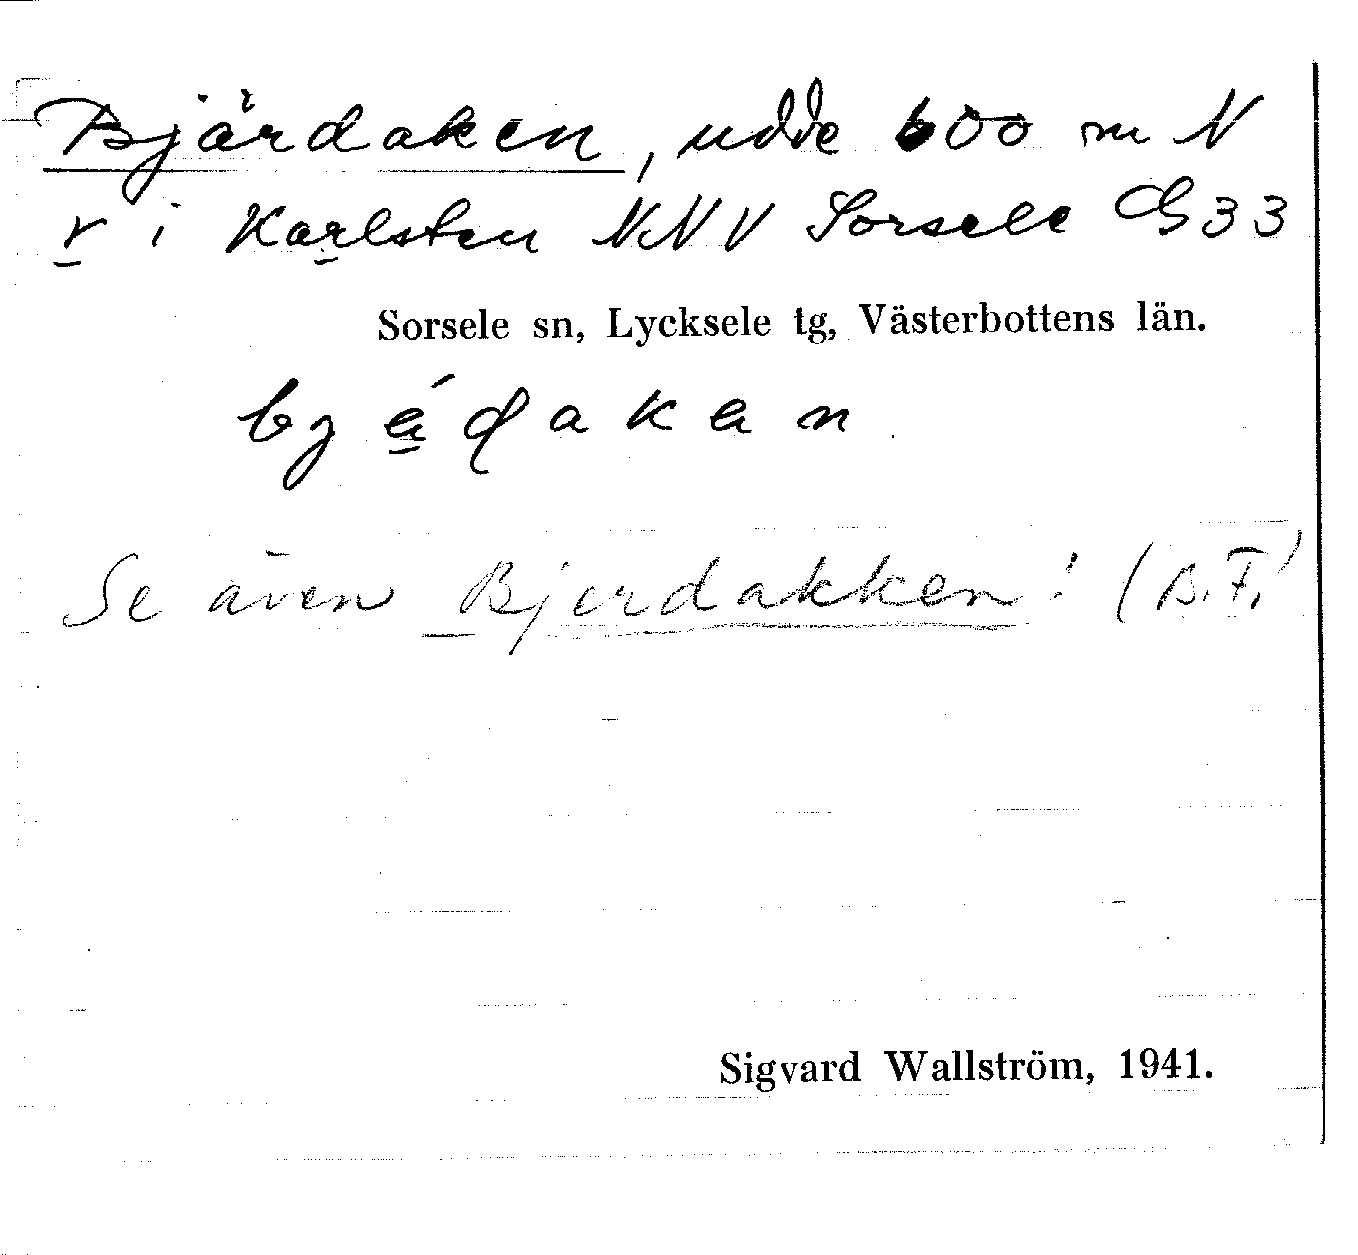 Bjärdaken, udde 600 m N
r i Karlsten NNV Sorsele G33
Sorsele sn, Lycksele tg, Västerbottens län.
Se även Bjerdakken! (B.F.)
Sigvard Wallström, 1941.